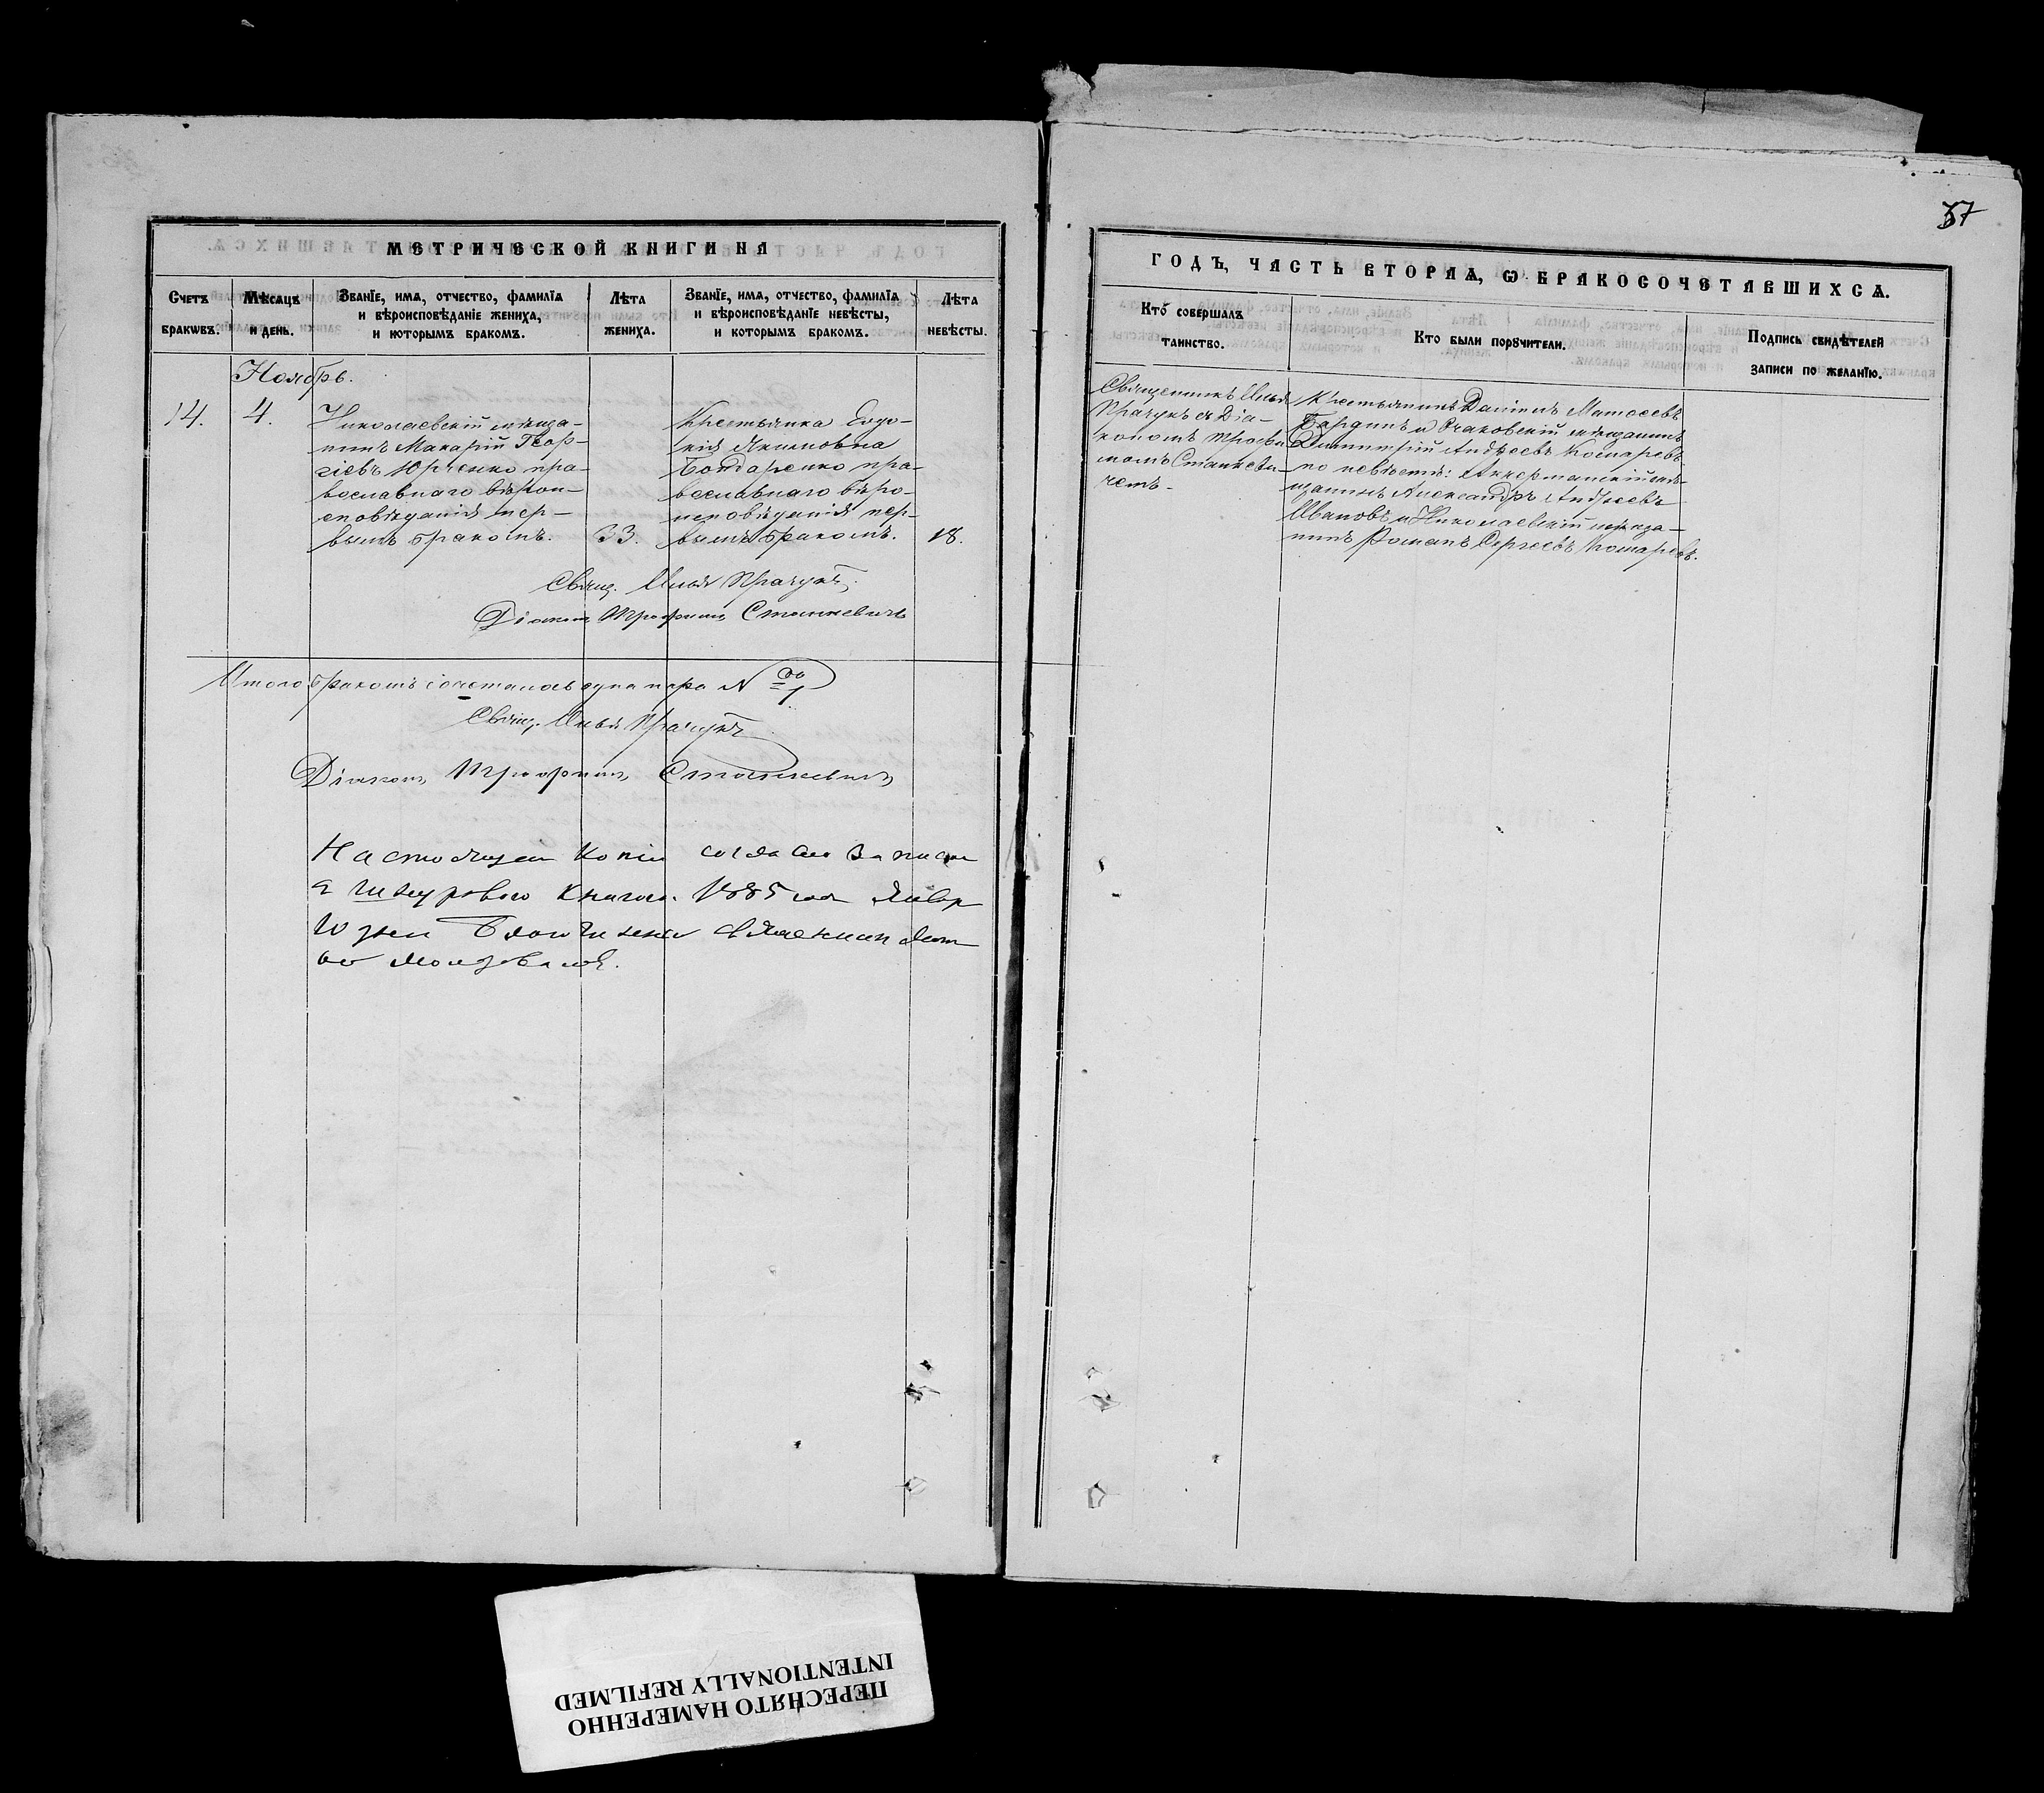 57
МЕТРИЧЕСКОЙ КНИГИ НА
Счетъ браковъ.
Мѣсяцъ и день.
Званїе, имя, отчество, фамилїя
и вѣроисповѣданїе жениха,
и которымъ бракомъ.
Лѣта
жениха.
Званїе, имя, отчество, фамилїя
и вѣроисповѣданїе невѣсты,
и которымъ бракомъ.
Лѣта
невѣсты.
Ноябрь.
14.
4.
Николаевскій мѣща-
нинъ Макарій Геор-
гіевъ Юрченко пра-
вославнаго вѣрои-
сповѣданія пер-
вымъ бракомъ.
33.
Крестьянка Евдо-
кія Якимовна
Бондаренко пра-
вославнаго вѣро-
исповѣданія пер-
вымъ бракомъ.
18.
Свящ. Илья Крачунъ.
Діаконъ Трофимъ Станкевичъ
Итого бракомъ сочеталось одна пара №
1
Свящ. Илья Крачунъ
Діаконъ Трофимъ Станкевичъ
Настоящей копіи
1885 года
ГОДЪ, ЧАСТЬ ВТОРАЯ, Ѡ БРАКОСОЧЕТАВШИХСЯ.
Кто совершалъ
таинство.
Кто были порꙋчители.
Подпись свидѣтелей
записи по желанїю.
Священникъ Илья
Крачунъ съ Діа-
кономъ Трофи
момъ Станкеви-
чемъ-
Крестьянинъ Даніилъ Матѳеевъ
Бардинъ и Очаковскій мѣщанинъ
Димитрій Андреевъ Комаревъ
по невѣстѣ: Аккерманскій мѣ-
щанинъ Александръ Андреевъ
Ивановъ и Николаевскій мѣща-
нинъ Романъ Сергѣевъ Комаревъ.
ПЕРЕСНЯТО НАМЕРЕННО
INTENTIONALLY REFILMED